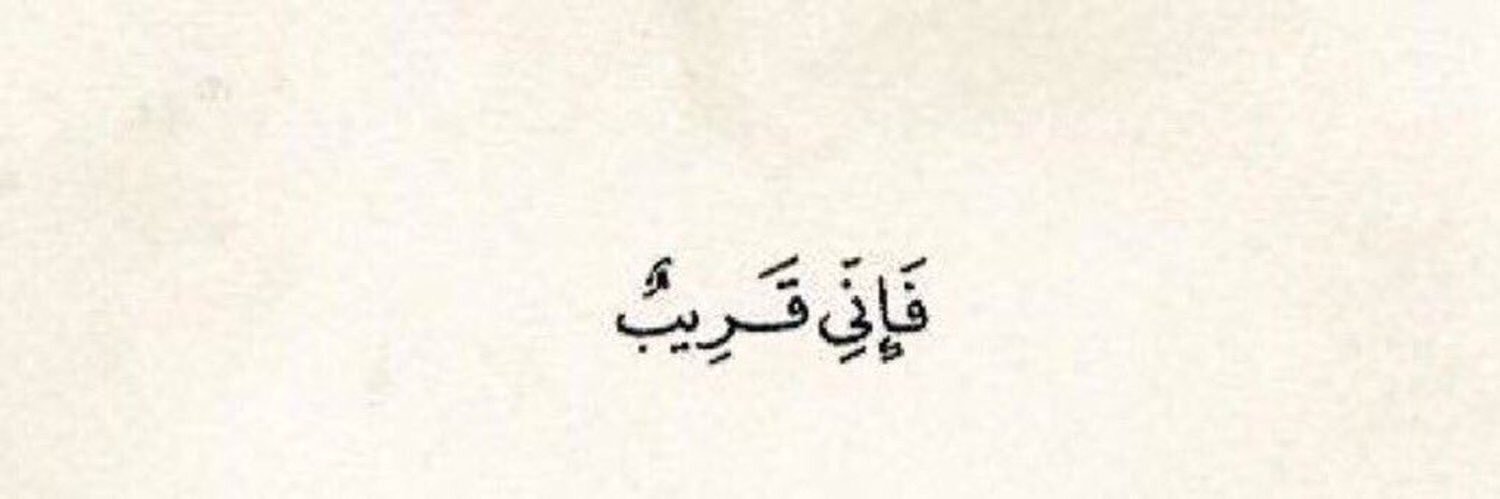 فَإِنِّي قَـرِيبٌ